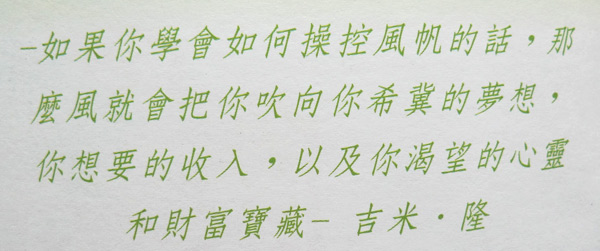 –如果你學會如何操控風帆的話，那
麼風就會把你吹向你希冀的夢想，
你想要的收入，以及你渴望的心靈
和財富寶藏– 吉米·隆